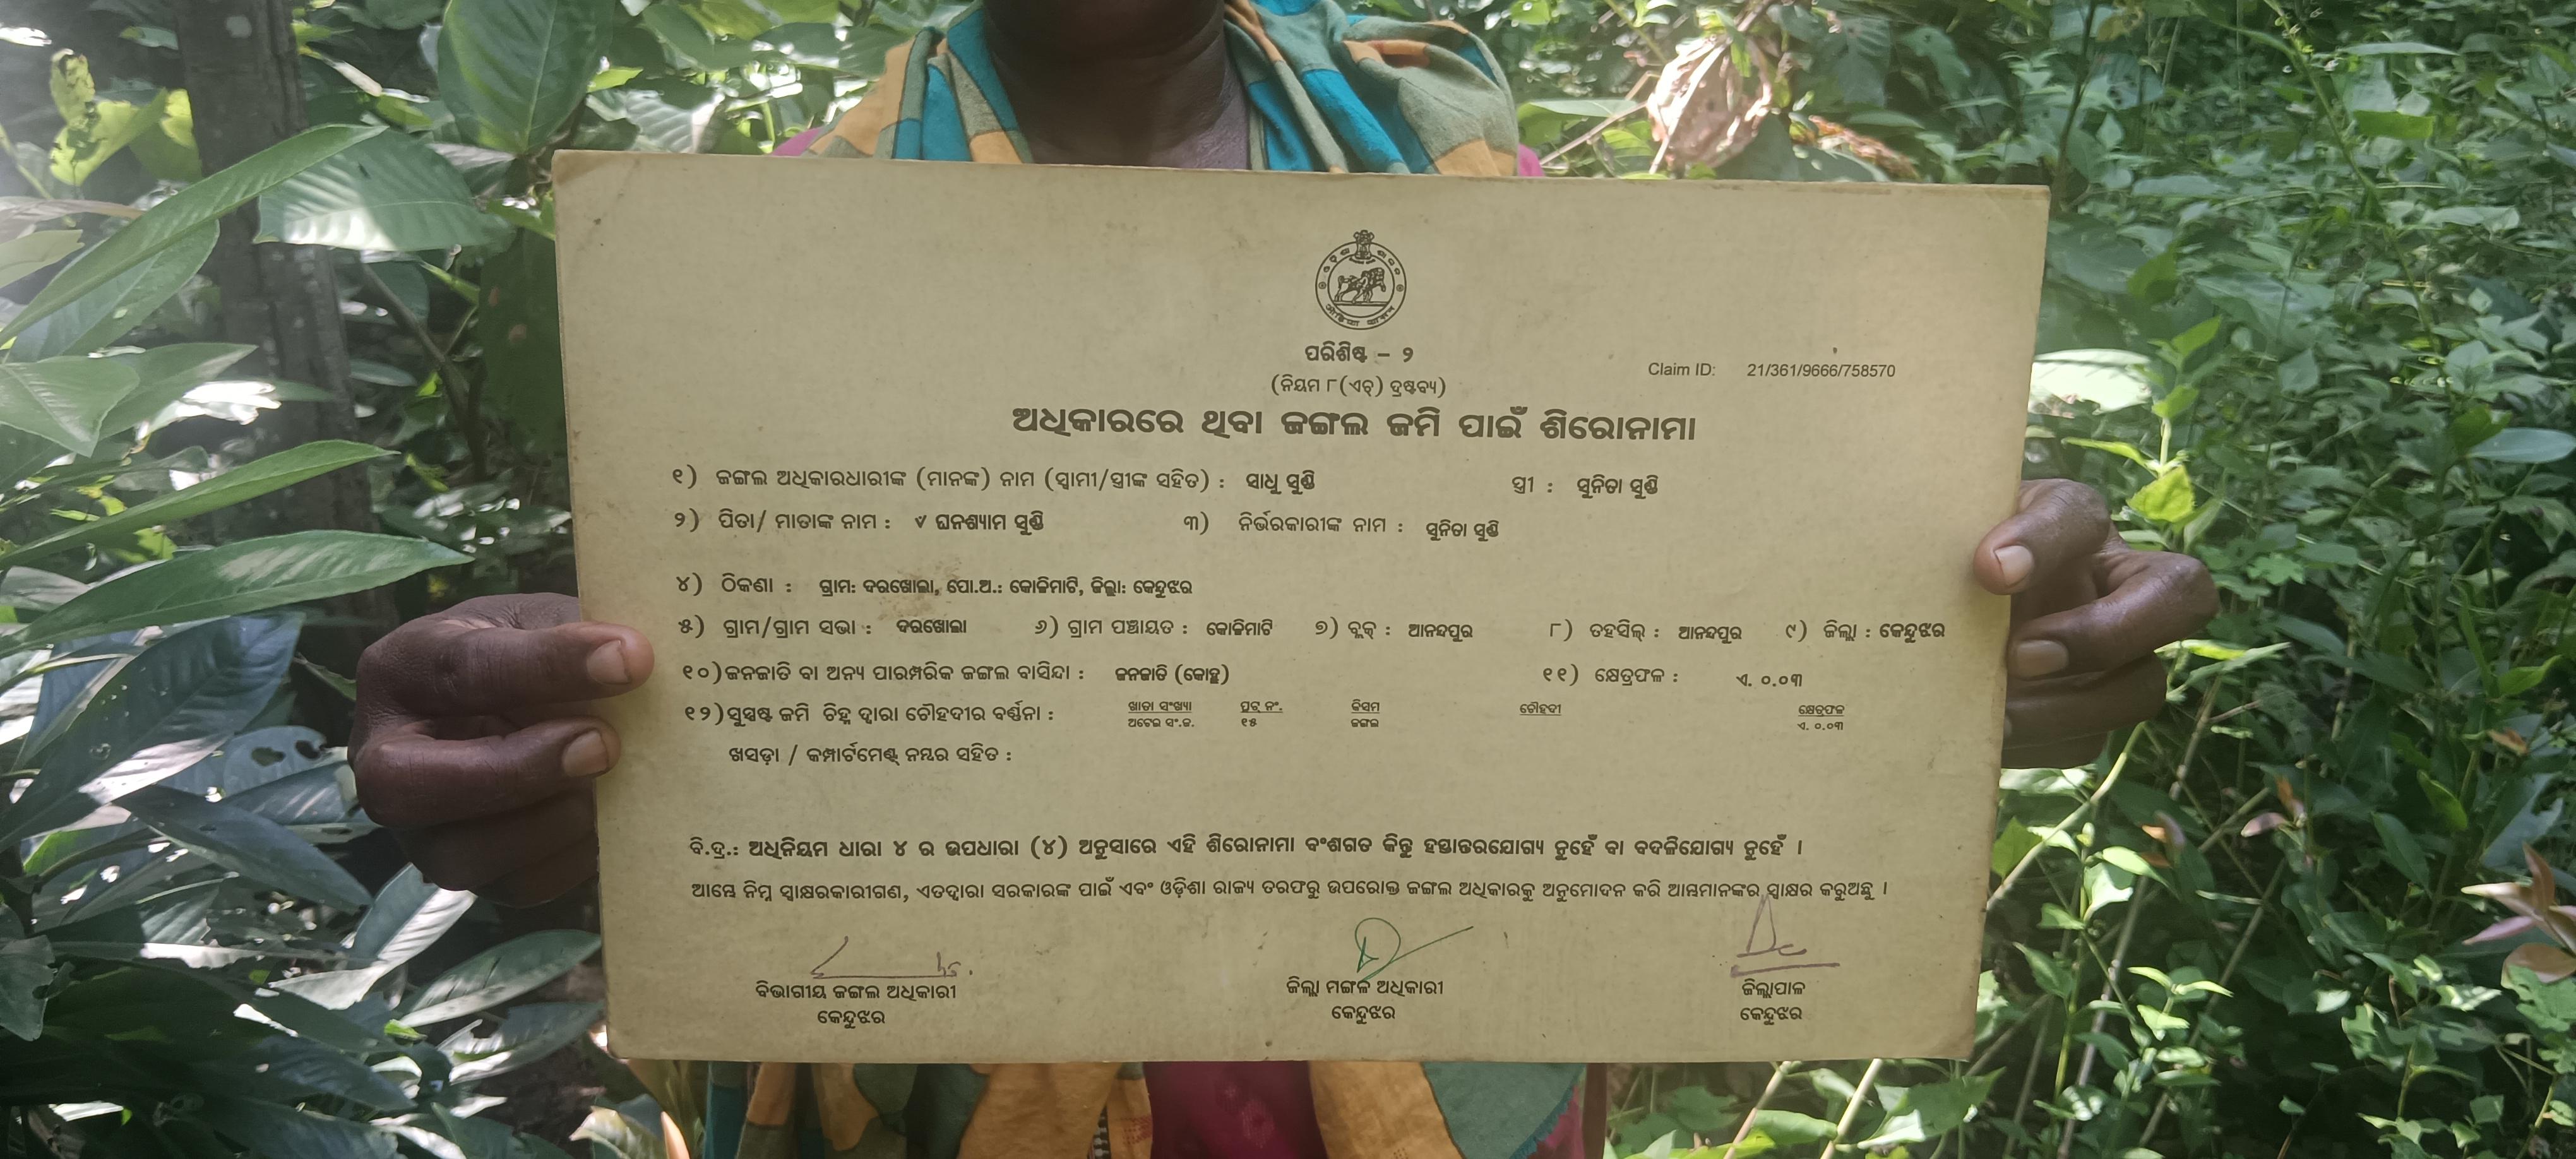 ପରିଶିଷ୍ଟ – ୨
(ନିୟମ ୮(ଏଚ୍) ଦ୍ରଷ୍ଟବ୍ୟ)
Claim ID: 21/361/9666/758570
ଅଧିକାରରେ ଥିବା ଜଙ୍ଗଲ ଜମି ପାଇଁ ଶିରୋନାମା
୧) ଜଙ୍ଗଲ ଅଧିକାରଧାରୀଙ୍କ (ମାନଙ୍କ) ନାମ (ସ୍ୱାମୀ/ସ୍ତ୍ରୀଙ୍କ ସହିତ) : ସାଧୁ ସୁଣ୍ଡି ସ୍ତ୍ରୀ : ସୁନିତା ସୁଣ୍ଡି
୨) ପିତା/ ମାତାଙ୍କ ନାମ : ୰ ଘନଶ୍ୟାମ ସୁଣ୍ଡି ୩) ନିର୍ଭରକାରୀଙ୍କ ନାମ : ସୁନିତା ସୁଣ୍ଡି
୪) ଠିକଣା : ଗ୍ରାମ: ଦରଖୋଲା, ପୋ.ଅ.: କୋଳିମାଟି, ଜିଲ୍ଲା: କେନ୍ଦୁଝର
୫) ଗ୍ରାମ/ଗ୍ରାମ ସଭା : ଦରଖୋଲା ୬) ଗ୍ରାମ ପଞ୍ଚାୟତ : କୋଳିମାଟି ୭) ବ୍ଲକ୍ : ଆନନ୍ଦପୁର ୮) ତହସିଲ୍ : ଆନନ୍ଦପୁର ୯) ଜିଲ୍ଲା : କେନ୍ଦୁଝର
୧୦)ଜନଜାତି ବା ଅନ୍ୟ ପାରମ୍ପରିକ ଜଙ୍ଗଲ ବାସିନ୍ଦା : ଜନଜାତି (କୋହ୍ଲ) ୧୧) କ୍ଷେତ୍ରଫଳ : ଏ. ୦.୦୩
୧୨)ସୁସ୍ପଷ୍ଟ ଜମି ଚିହ୍ନ ଦ୍ୱାରା ଚୌହଦୀର ବର୍ଣ୍ଣନା : ଖାତା ସଂଖ୍ୟା ପ୍ଲଟ୍ ନଂ. କିସମ ଚୌହଦୀ କ୍ଷେତ୍ରଫଳ
ଅଟେଇ ସଂ.ଜ. ୧୫ ଜଙ୍ଗଲ ଏ. ୦.୦୩
ଖସଡ଼ା / କମ୍ପାର୍ଟମେଣ୍ଟ୍ ନମ୍ବର ସହିତ :
ବି.ଦ୍ର.: ଅଧିନିୟମ ଧାରା ୪ ର ଉପଧାରା (୪) ଅନୁସାରେ ଏହି ଶିରୋନାମା ବଂଶଗତ କିନ୍ତୁ ହସ୍ତାନ୍ତରଯୋଗ୍ୟ ନୁହେଁ ବା ବଦଳିଯୋଗ୍ୟ ନୁହେଁ ।
ଆମ୍ଭେ ନିମ୍ନ ସ୍ୱାକ୍ଷରକାରୀଗଣ, ଏତଦ୍ୱାରା ସରକାରଙ୍କ ପାଇଁ ଏବଂ ଓଡ଼ିଶା ରାଜ୍ୟ ତରଫରୁ ଉପରୋକ୍ତ ଜଙ୍ଗଲ ଅଧିକାରକୁ ଅନୁମୋଦନ କରି ଆମ୍ଭମାନଙ୍କର ସ୍ୱାକ୍ଷର କରୁଅଛୁ ।
ବିଭାଗୀୟ ଜଙ୍ଗଲ ଅଧିକାରୀ ଜିଲ୍ଲା ମଙ୍ଗଳ ଅଧିକାରୀ ଜିଲ୍ଲାପାଳ
କେନ୍ଦୁଝର କେନ୍ଦୁଝର କେନ୍ଦୁଝର